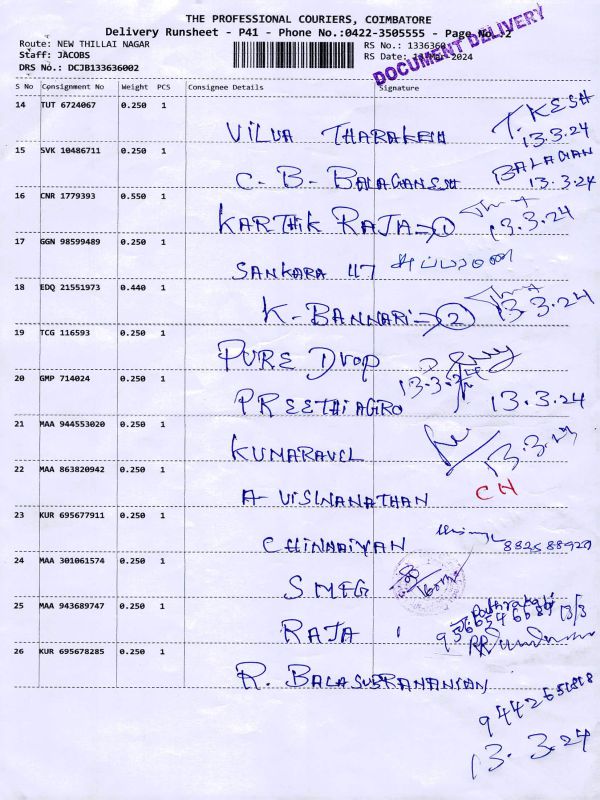 THE PROFESSIONAL COURIERS, COIMBATORE
Delivery Runsheet - P41 - Phone No.:0422-3505555 - Page No. 2
Route: NEW THILLAI NAGAR
RS No.: 1336360
Staff: JACOBS
RS Date: 2024
DRS No.: DCJB133636002
DOCUMENT DELIVERY
S No Consignment No Weight PCS Consignee Details Signature
14 TUT 6724067 0.250 1
VILVA THARAKESH T. KESH
13.3.24
15 SVK 10486711 0.250 1
C. B. BALAGANESH BALAGAN
13.3.24
16 CNR 1779393 0.550 1
KARTHIK RAJA 1 13.3.24
17 GGN 98599489 0.250 1
SANKARA 117
18 EDQ 21551973 0.440 1
K. BANNARI 2 13.3.24
19 TCG 116593 0.250 1
PURE DROP 13.3.24
20 GMP 714024 0.250 1
PREETHI AGRO 13.3.24
21 MAA 944553020 0.250 1
KUMARAVEL 13.3.24
22 MAA 863820942 0.250 1
A. VISWANATHAN CH
23 KUR 695677911 0.250 1
CHINNAIYAN
24 MAA 301061574 0.250 1
SMFG
25 MAA 943689747 0.250 1
RAJA 13/3
26 KUR 695678285 0.250 1
R. BALASUBRAMANIAN
13.3.24